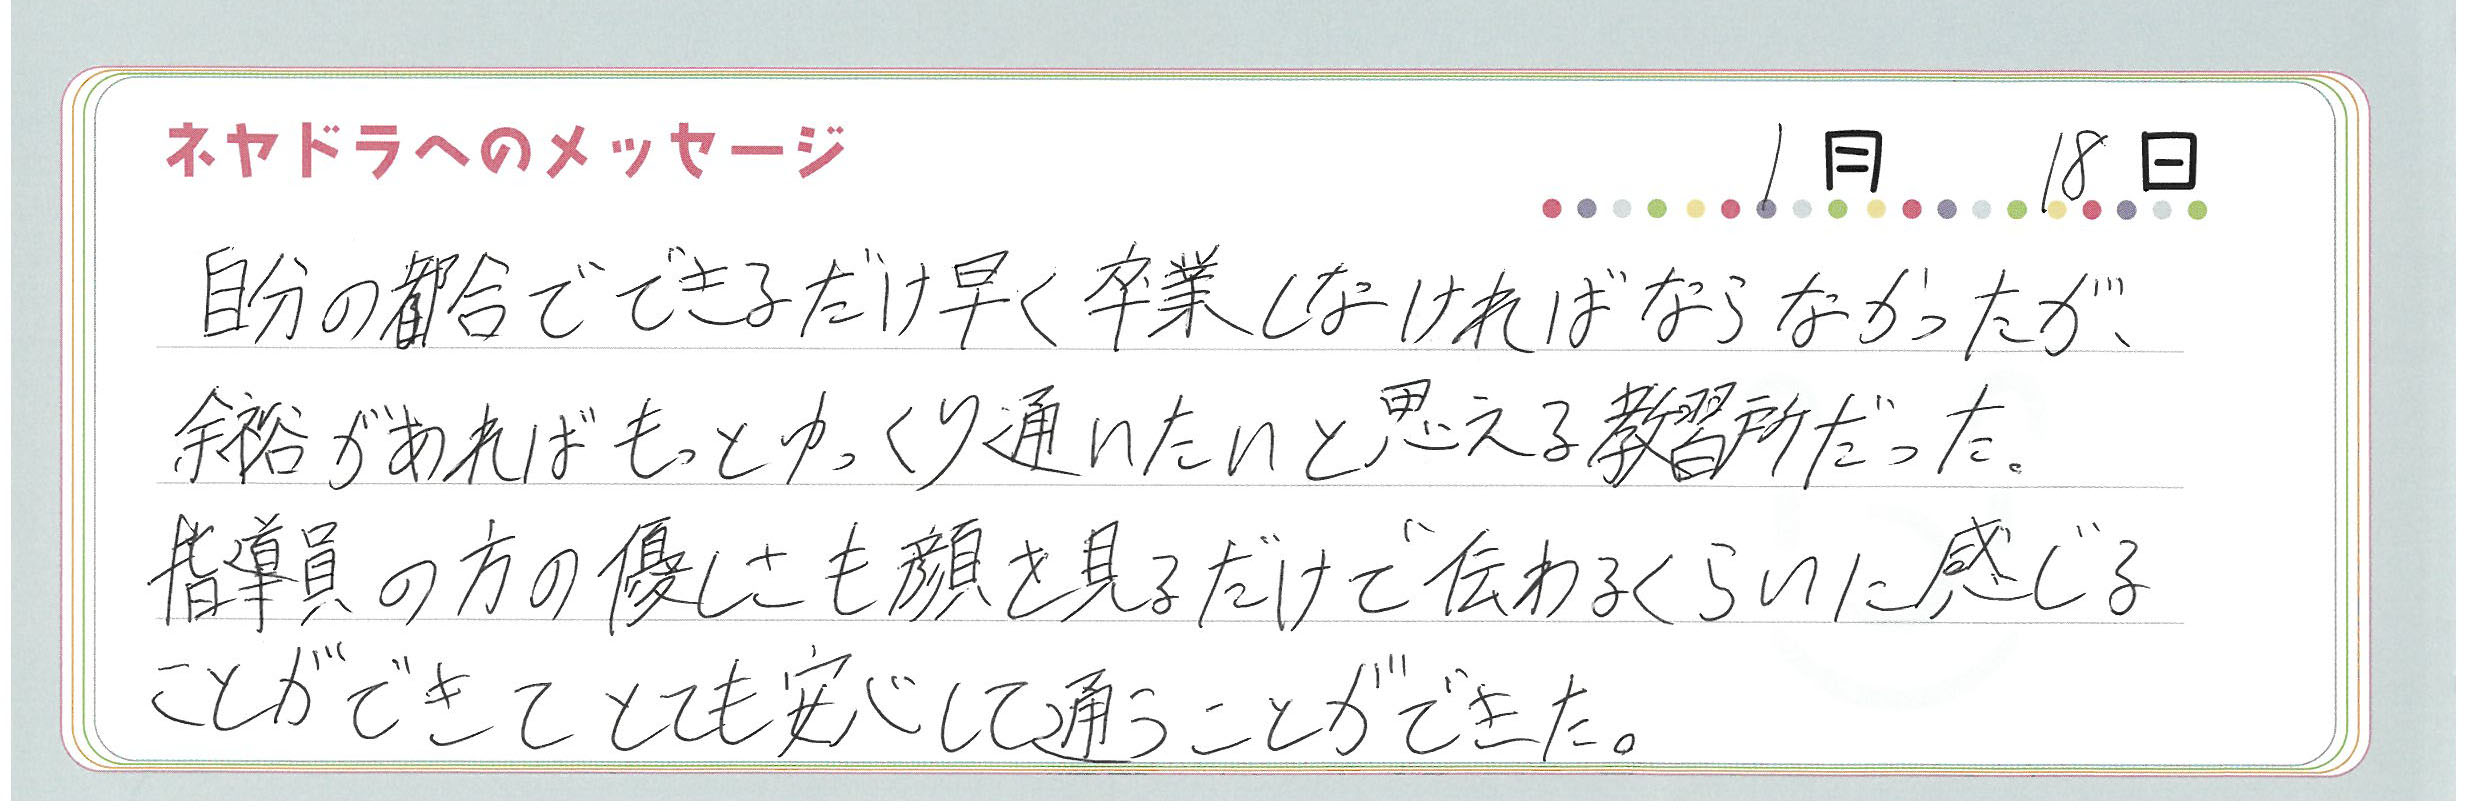 ネヤドラへのメッセージ
1月 18日
自分の都合でできるだけ早く卒業しなければならなかったが、
余裕があればもっとゆっくり通いたいと思える教習所だった。
指導員の方の優しさも顔を見るだけで伝わるくらいに感じる
ことができてとても安心して通うことができた。